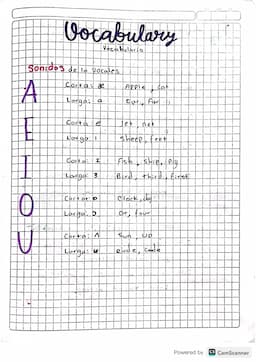 Vocabulary
Vocabulario
Sonidos de la vocales
A
Corta: æ Apple, cat
Larga: a Car, Far
E
Corta e Jet, net
Larga: i Sheep, feet
I
Corta: I Fish, Ship, Pig
Larga: 3 Bird, third, first
O
Corta: Clock,
Larga: Or, four
U
Corta: ʌ Sun, up
Larga: u
Powered by CS CamScanner